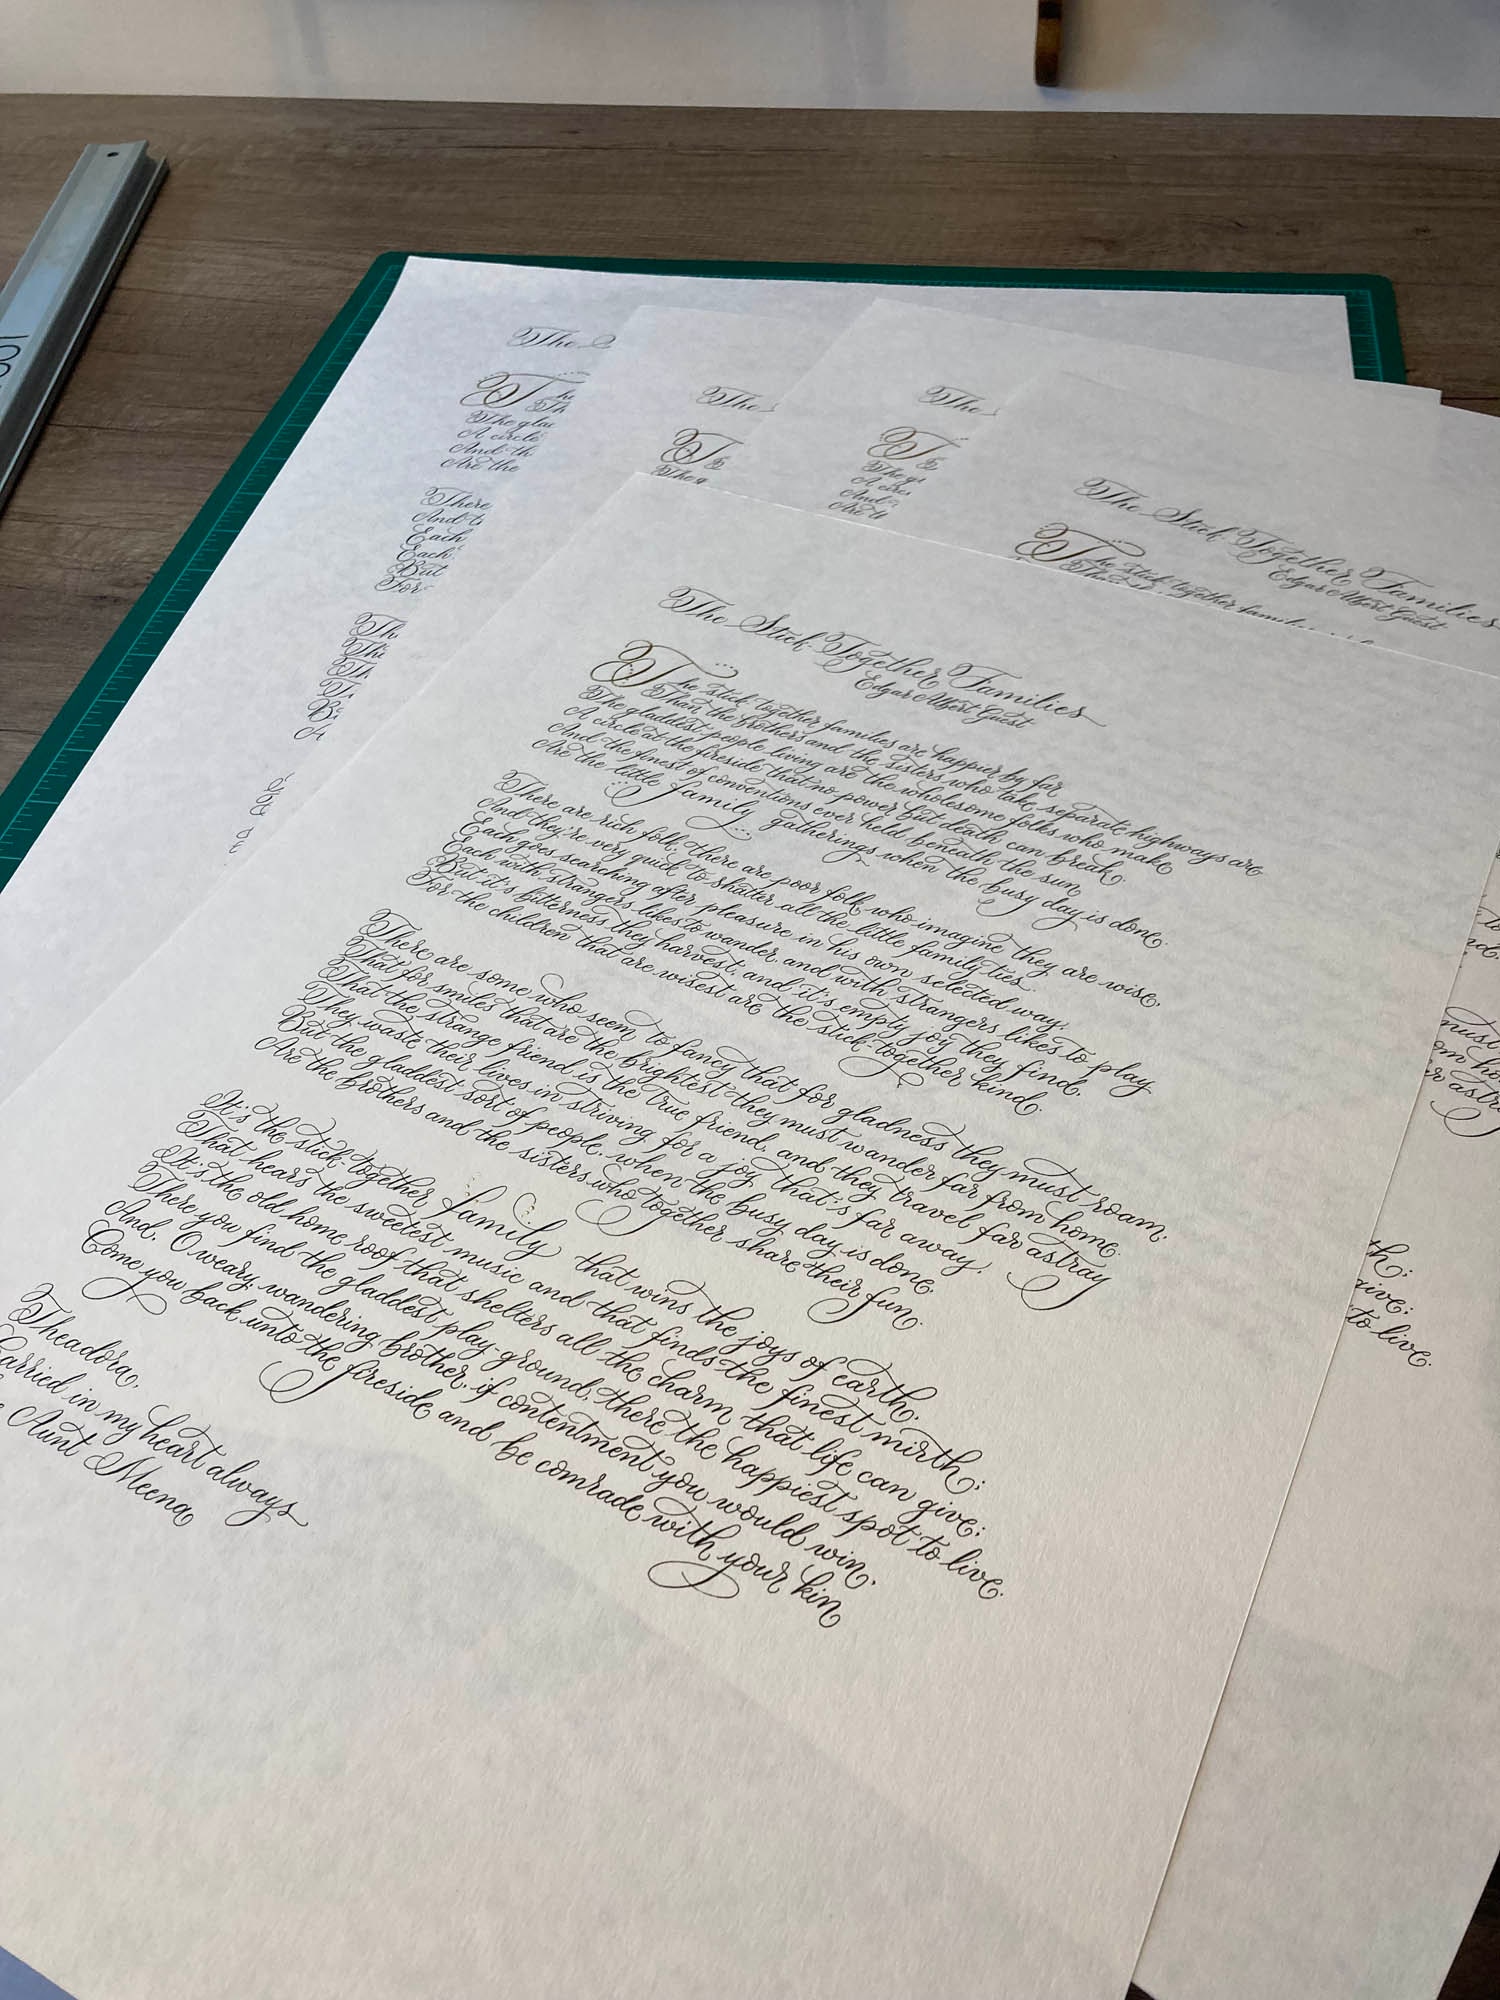 The Stick-Together Families
Edgar Albert Guest
The stick-together families are happier by far
Than the brothers and the sisters who take separate highways are
The gladdest people living are the wholesome folks who make
A circle at the fireside that no power but death can break.
And the finest of conventions ever held beneath the sun
Are the little family gatherings when the busy day is done.
There are rich folk, there are poor folk, who imagine they are wise,
And they're very quick to shatter all the little family ties.
Each goes searching after pleasure in his own selected way,
Each with strangers likes to wander, and with strangers likes to play.
But it's bitterness they harvest, and it's empty joy they find,
For the children that are wisest are the stick-together kind.
There are some who seem to fancy that for gladness they must roam,
That for smiles that are the brightest they must wander far from home.
That the strange friend is the true friend, and they travel far astray
They waste their lives in striving for a joy that's far away,
But the gladdest sort of people, when the busy day is done,
Are the brothers and the sisters who together share their fun.
It's the stick-together family that wins the joys of earth,
That hears the sweetest music and that finds the finest mirth;
It's the old home roof that shelters all the charm that life can give;
There you find the gladdest play-ground, there the happiest spot to live.
And, O weary, wandering brother, if contentment you would win,
Come you back unto the fireside and be comrade with your kin
Theadora,
Carried in my heart always
Aunt Meena
The
The
The glad
A circle
And th
Are the
There
And t
Each
Each
But
For
Th
Th
Th
The
T
The
The g
The
T
The g
A circ
And
Are t
The Stick-Together Families
Edgar Albert Guest
The stick-together famili
Than
must
astra
th;
give;
to live.